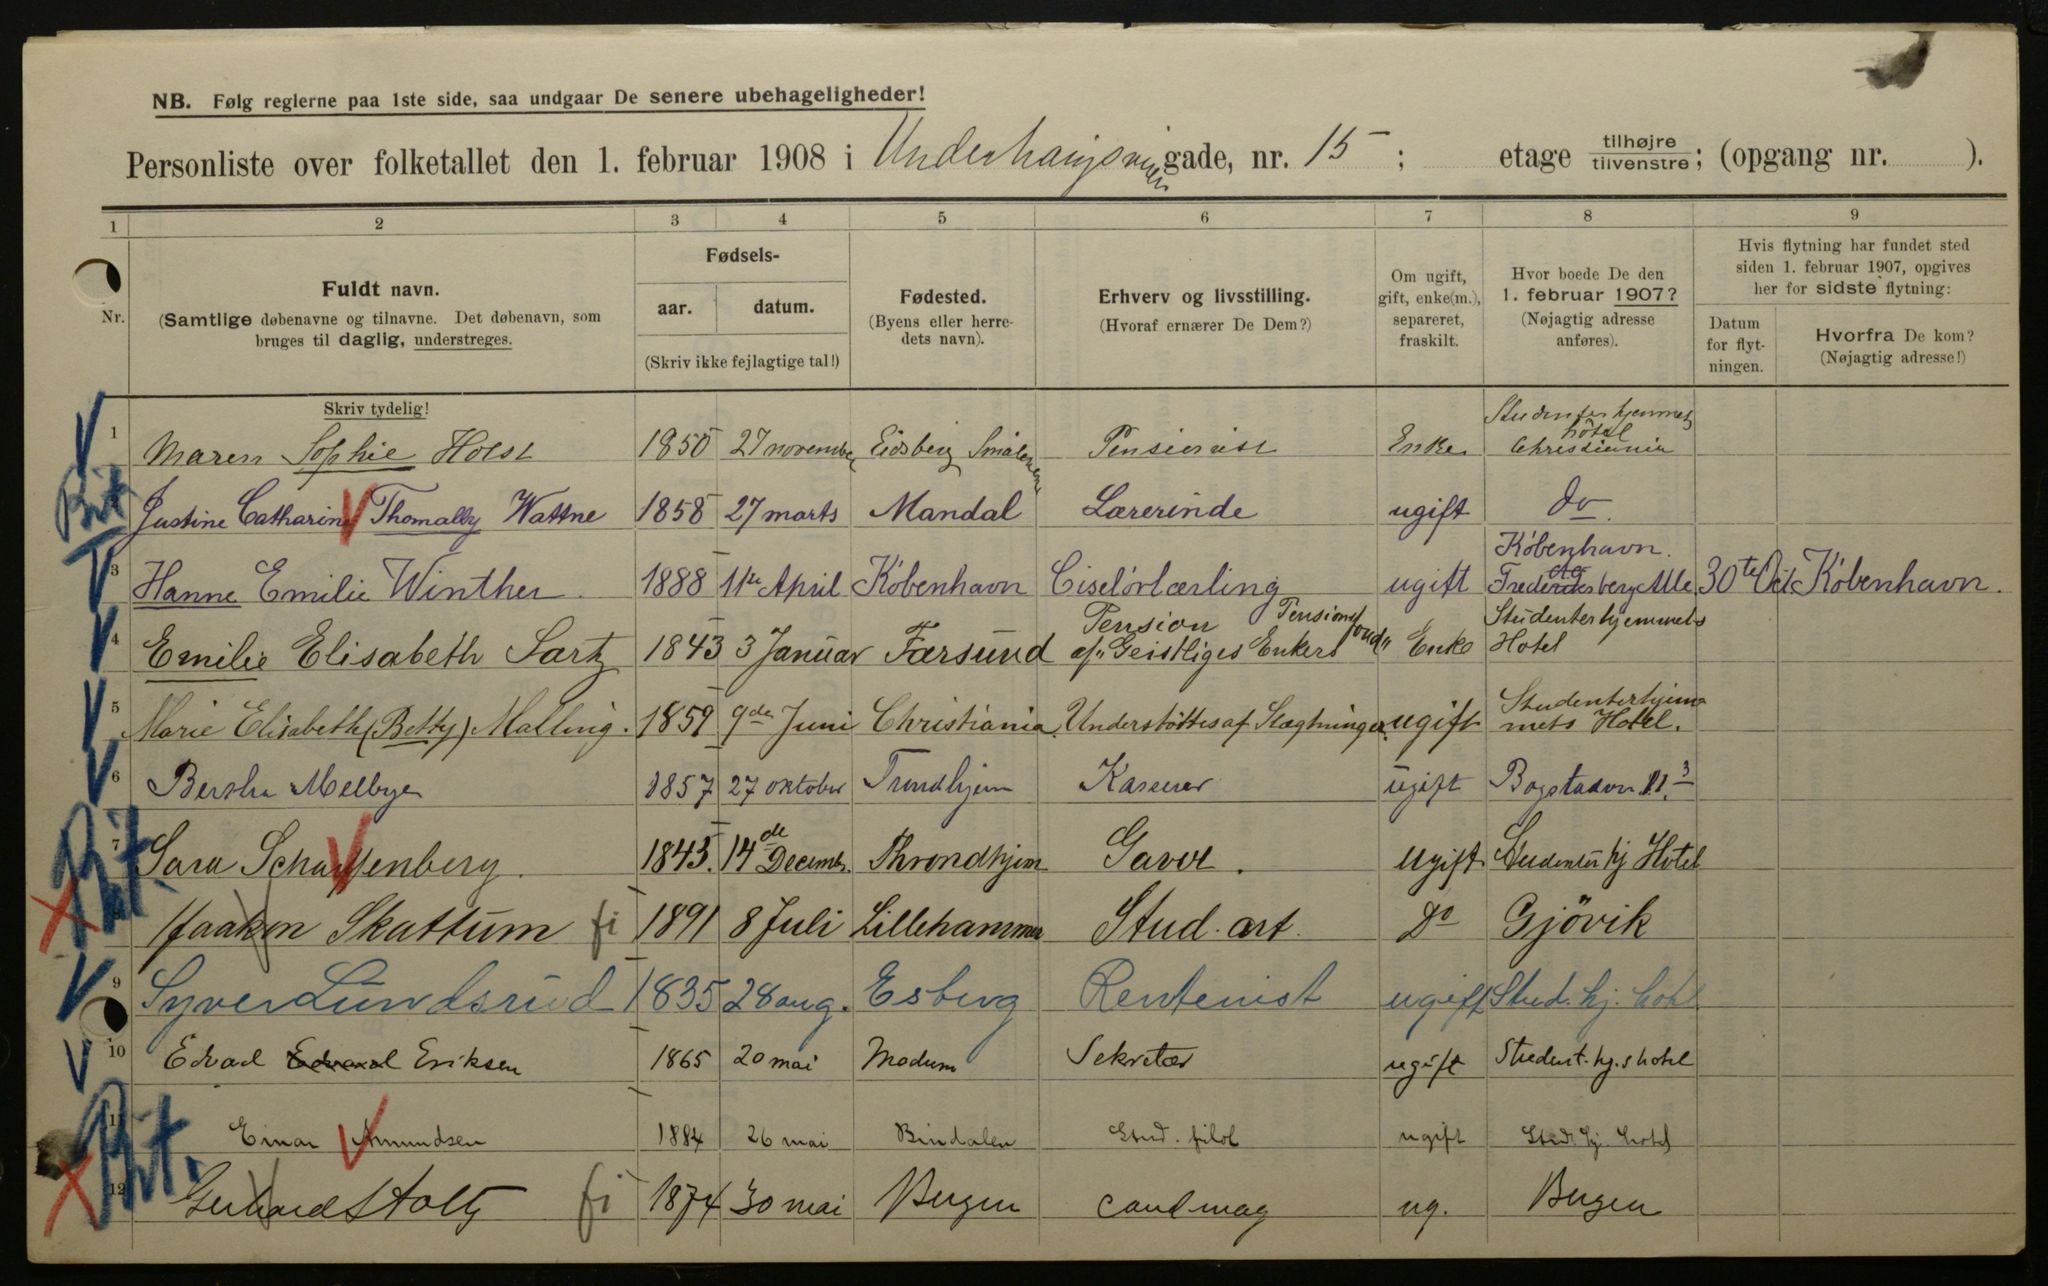 NB. Følg reglerne paa 1ste side, saa undgaar De senere ubehageligheder!
Personliste over folketallet den 1. februar 1908 i Underhaugsveien gade, nr. 15 ; etage tilhøjre tilvenstre ; (opgang nr. ).
1 2 3 4 5 6 7 8 9
Nr.
Fuldt navn.
(Samtlige døbenavne og tilnavne. Det døbenavn, som
bruges til daglig, understreges.
Skriv tydelig!
Fødsels-
aar. datum.
(Skriv ikke fejlagtige tal!)
Fødested.
(Byens eller herre-
dets navn).
Erhverv og livsstilling.
(Hvoraf ernærer De Dem?)
Om ugift,
gift, enke(m.),
separeret,
fraskilt.
Hvor boede De den
1. februar 1907?
(Nøjagtig adresse
anføres).
Hvis flytning har fundet sted
siden 1. februar 1907, opgives
her for sidste flytning:
Datum
for flyt-
ningen.
Hvorfra De kom?
(Nøjagtig adresse!)
1 Maren Sophie Holst 1850 27 november Eidsberg Smålenene Pensionist Enke Studenterhjemmets hôtel Christiania
Justine Catharine Thomally Wattne 1858 27 marts Mandal Lærerinde ugift do
3 Hanne Emilie Winther. 1888 11te April København Ciselørlærling ugift København. Frederiksberg Alle 30te Oct København.
4 Emilie Elisabeth Sartz 1843 3 Januar Farsund Pension af "Geistliges Enkers Pensionsfond" Enke Studenterhjemmets Hotel
5 Marie Elisabeth (Betty) Malling. 1859 9de Juni Christiania Understöttes af Slægtninger. ugift Studenterhjemmets Hotel.
6 Bertha Melbye 1857 27 oktober Trondhjem Kaserer ugift Bogstadvn 11.3
7 Sara Scharffenberg. 1845. 14de Decembr. Throndhjem Gaver. ugift Studenterhj Hotel
8 Haakon Skattum fi 1891 8 Juli Lillehammer Stud. art. Do Gjövik
9 Syver Lundsrud 1835 28 aug. Esberg Rentenist ugift Stud. hj. hotel
10 Edvad Edvard Eriksen 1865 20 mai Modum Sekretær ugift Student. hj.s hotel
11 Einar Amundsen 1884 26 mai Bindalen Stud. filol ugift Stud. hj. hotel
12 Gerhard Stoltz fi 1874 30 mai Bergen cand mag ug. Bergen